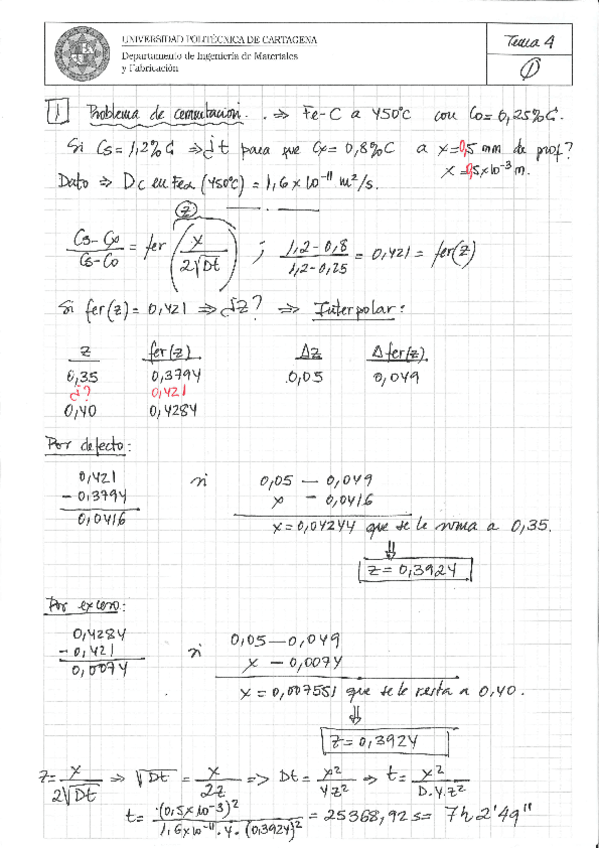 UNIVERSIDAD POLITÉCNICA DE CARTAGENA
Departamento de Ingeniería de Materiales
y Fabricación
Tema 4
①
1 Problema de cementación. ⇒ Fe-C a 950°C con Co = 0,25%C.
Si Cs = 1,2% C ⇒ ¿t para que Cx = 0,8%C a x = 0,5 mm de prof?
x = 0,5 x 10⁻³ m.
Dato ⇒ Dc en Feα (950°C) = 1,6 x 10⁻¹¹ m²/s.
z
(Cs - Cx)/(Cs - Co) = fer (x/(2√Dt)) ; (1,2 - 0,8)/(1,2 - 0,25) = 0,421 = fer(z)
Si fer(z) = 0,421 ⇒ ¿z? ⇒ Interpolar:
z fer(z) Δz Δfer(z)
0,35 0,3794 0,05 0,049
¿? 0,421
0,40 0,4284
Por defecto:
0,421 si 0,05 — 0,049
- 0,3794 x - 0,0416
0,0416 x = 0,04244 que se le suma a 0,35.
⇓
z = 0,3924
Por exceso:
0,4284 si 0,05 — 0,049
- 0,421 x - 0,0074
0,0074 x = 0,007551 que se le resta a 0,40.
⇓
z = 0,3924
z = x/(2√Dt) ⇒ √Dt = x/(2z) => Dt = x²/(4z²) ⇒ t = x²/(D.4.z²)
t = (0,5 x 10⁻³)²/(1,6 x 10⁻¹¹ . 4 . (0,3924)²) = 25368,92 s = 7h 2' 49"